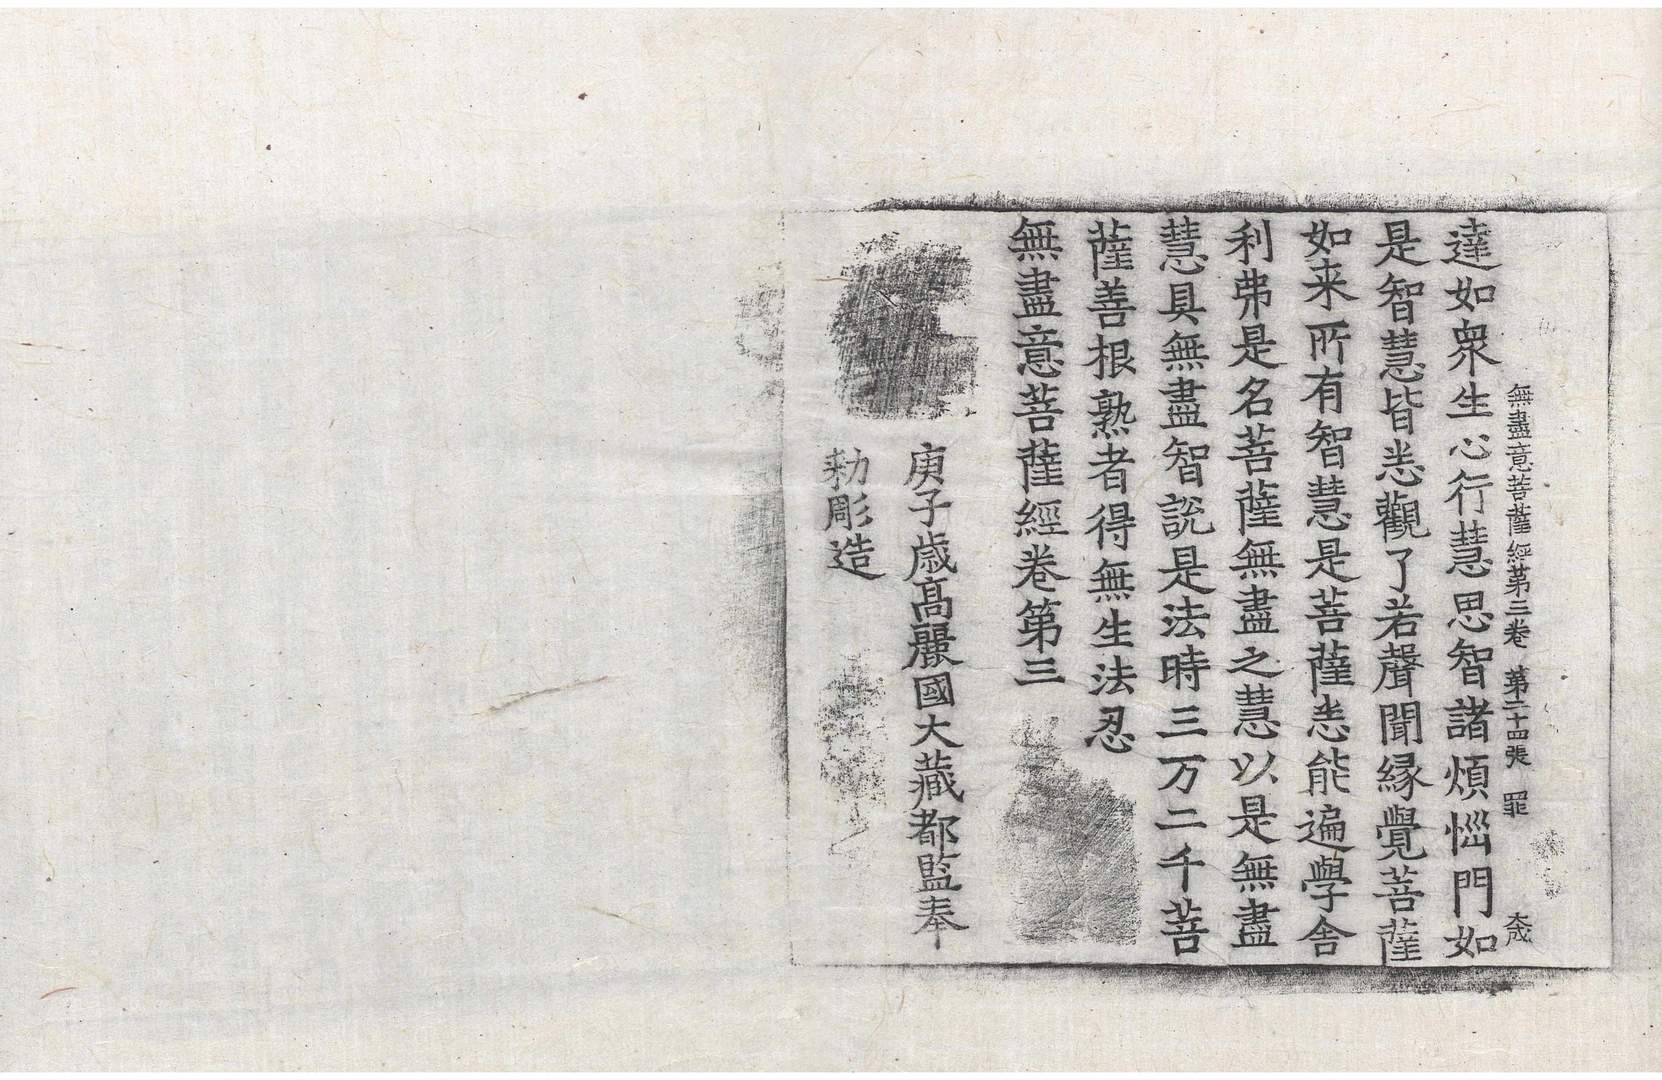 無盡意菩薩經第三卷 第二十四張 罪 大成
達如衆生心行慧思智諸煩惱門如
是智慧皆悉觀了若聲聞緣覺菩薩
如来所有智慧是菩薩悉能遍學舍
利弗是名菩薩無盡之慧以是無盡
慧具無盡智說是法時三万二千菩
薩善根熟者得無生法忍
無盡意菩薩經卷第三
庚子歳高麗國大藏都監奉
勅彫造